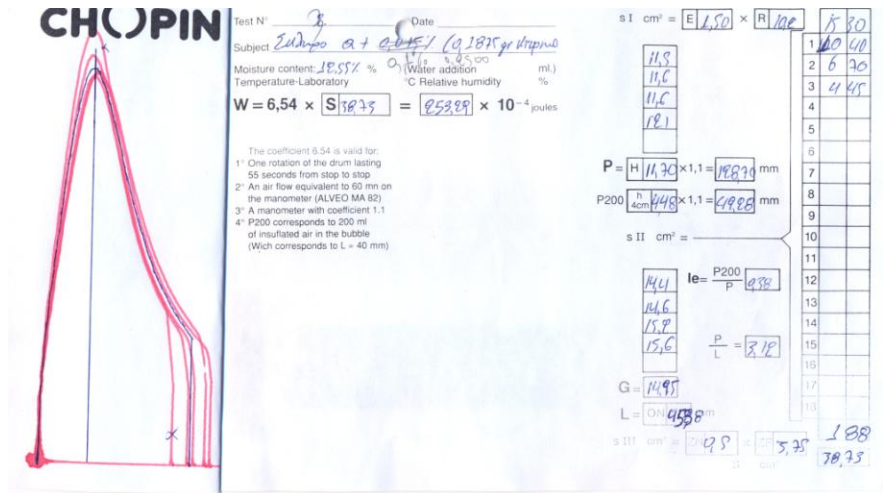 CHOPIN
Test N° Date
Subject
Moisture content: % (Water addition ml.)
Temperature-Laboratory °C Relative humidity %
W = 6,54 × S 38,73 = 253,29 × 10⁻⁴ joules
The coefficient 6.54 is valid for:
1° One rotation of the drum lasting
55 seconds from stop to stop
2° An air flow equivalent to 60 mn on
the manometer (ALVEO MA 82)
3° A manometer with coefficient 1.1
4° P200 corresponds to 200 ml
of insuflated air in the bubble
(Wich corresponds to L = 40 mm)
s I cm² = E 1,50 × R
11,6
11,6
12,1
P = H 11,70 ×1,1 = 128,70 mm
P200 h 4cm 44,8 ×1,1 = 49,28 mm
s II cm² =
14,4
14,6
15,2
15,6
Ie= P200 / P 0,38
P / L = 3,12
G = 14,95
L =
s III cm² = 0,5 × 5,75
15 30
1 40
2 6 70
3 4 45
4
5
6
7
8
9
10
11
12
13
14
15
16
17
18
188
38,73